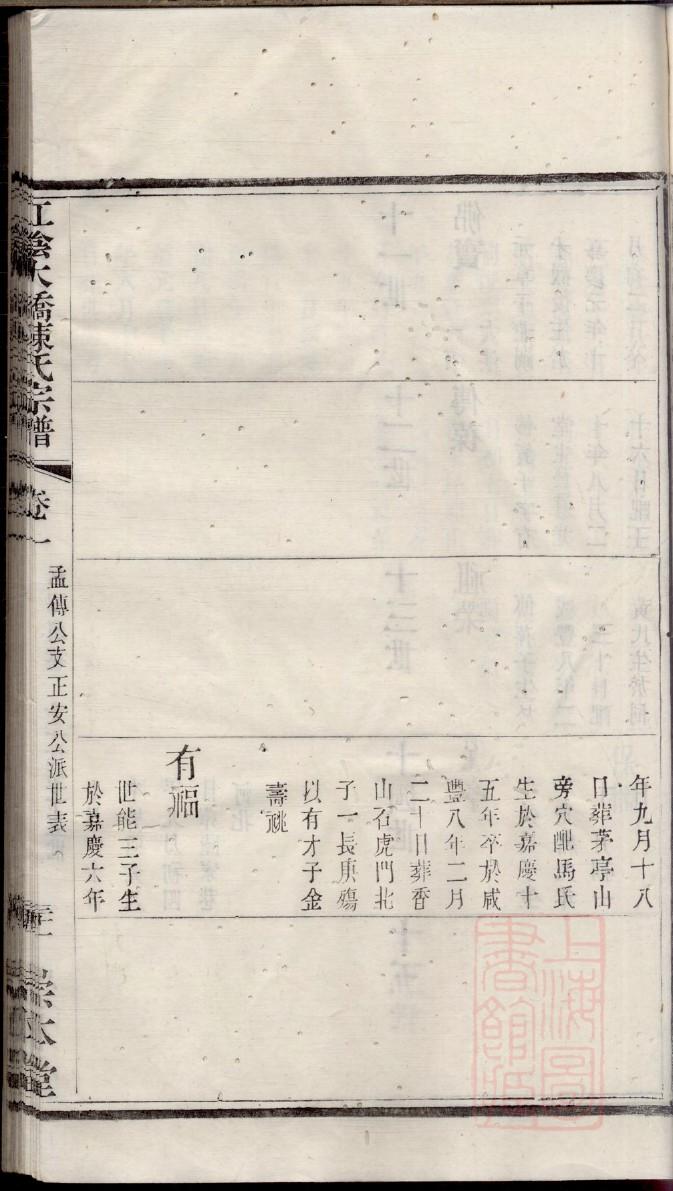 年九月十八
日葬茅亭山
旁穴配馬氏
生於嘉慶十
五年卒於咸
豐八年二月
二十日葬香
山石虎門北
子一長庚殤
以有才子金
壽祧
有福
世能三子生
於嘉慶六年
孟傳公支正安公派世表
江陰大橋陳氏宗譜
卷一
宗本堂
上海圖書館藏